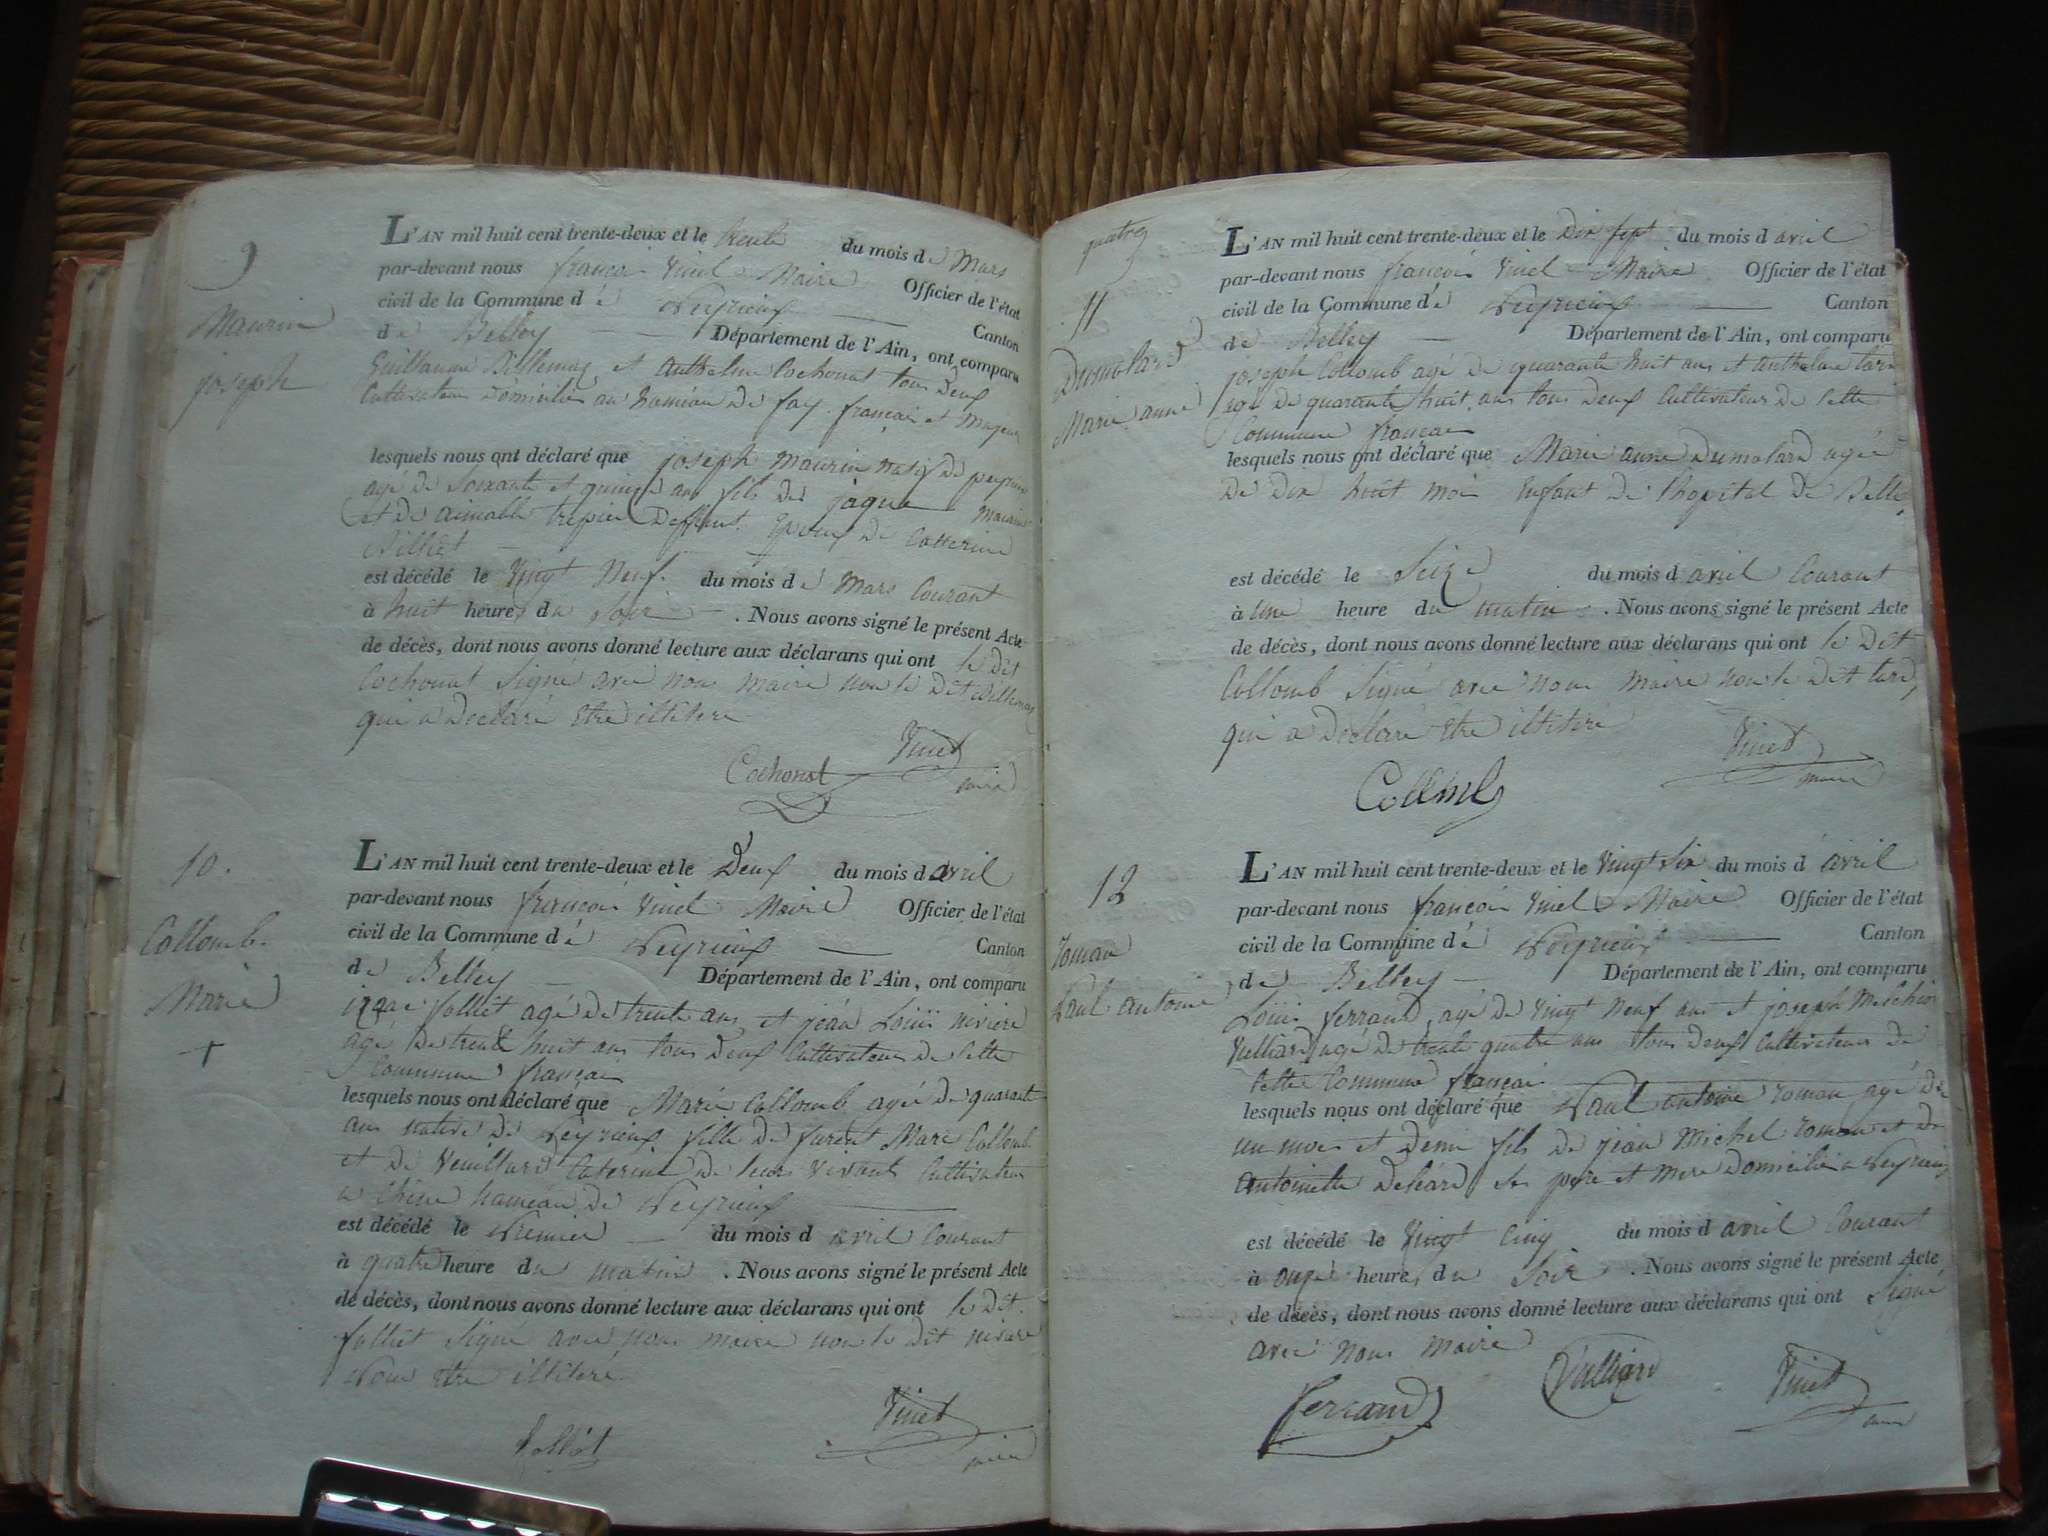 9
Maurin
joseph
L'AN mil huit cent trente-deux et le trente du mois de Mars
par-devant nous françois Vinet Maire Officier de l'état
civil de la Commune de Peyrieux Canton
de Belley Département de l'Ain, ont comparu
Guillaume Billemaz et anthelme Cochonat tous deux
Cultivateurs domiciliés au hameau de fay français et majeurs
lesquels nous ont déclaré que joseph maurin natif de peyrieux
agé de Soixante et quinze ans fils de jaque maurin
et de aimable trepier Deffunt Epoux de Catterine
Billiet
est décédé le Vingt Neuf du mois de mars Courant
à huit heures du Soir . Nous avons signé le présent Acte
de décès, dont nous avons donné lecture aux déclarans qui ont le dit
Cochonat Signé avec nous maire non le dit Billemaz
qui a declaré etre illiteré
Cochonat Vinet
maire
10.
Collomb.
Marie
+
L'AN mil huit cent trente-deux et le Deux du mois d avril
par-devant nous françois Vinet Maire Officier de l'état
civil de la Commune de Peyrieux Canton
de Belley Département de l'Ain, ont comparu
izaac folliet agé de trente ans et jéan Loüis riviere
agé de trente huit ans tous deux Cultivateurs de Cette
Commune français
lesquels nous ont déclaré que Marie Collomb agée de quarante
ans native de Peyrieux fille de furent Marc Collomb
et de Veuillard Caterine de leurs vivants Cultivateurs
a hameau de Peyrieux
est décédé le Premier du mois d avril Courant
à quatre heure du matin . Nous avons signé le présent Acte
de décès, dont nous avons donné lecture aux déclarans qui ont le dit
folliet Signé avec nous maire non le dit riviere
Pour etre illiteré
folliet Vinet
maire
quatre
11
Dumolard
Marie anne
L'AN mil huit cent trente-deux et le Dix sept du mois d avril
par-devant nous françois Vinet Maire Officier de l'état
civil de la Commune de Peyrieux Canton
de Belley Département de l'Ain, ont comparu
joseph Collomb agé de quarante huit ans et anthelme
agé de quarante huit ans tous deux Cultivateurs de Cette
Commune français
lesquels nous ont déclaré que Marie anne Dumolard agée
de dix huit mois Enfant de l'hopital de Belley
est décédé le Seize du mois d avril Courant
à une heure du matin . Nous avons signé le présent Acte
de décès, dont nous avons donné lecture aux déclarans qui ont le dit
Collomb Signé avec nous maire non le dit
qui a declaré etre illiteré
Collomb Vinet
maire
12
roman
Paul antoine
L'AN mil huit cent trente-deux et le Vingt Six du mois d avril
par-devant nous françois Vinet Maire Officier de l'état
civil de la Commune de Peyrieux Canton
de Belley Département de l'Ain, ont comparu
Loüis ferrand agé de Vingt Neuf ans et joseph Melchior
Vulliard agé de trente quatre ans tous deux Cultivateurs de
Cette Commune français
lesquels nous ont déclaré que Paul antoine roman agé de
un mois et demi fils de jéan Michel roman et de
antoinette ses pere et mere domiciliés a Peyrieux
est décédé le Vingt Cinq du mois d avril Courant
à onze heures du Soir . Nous avons signé le présent Acte
de décès, dont nous avons donné lecture aux déclarans qui ont Signé
avec nous maire
ferrand Vulliard Vinet
maire